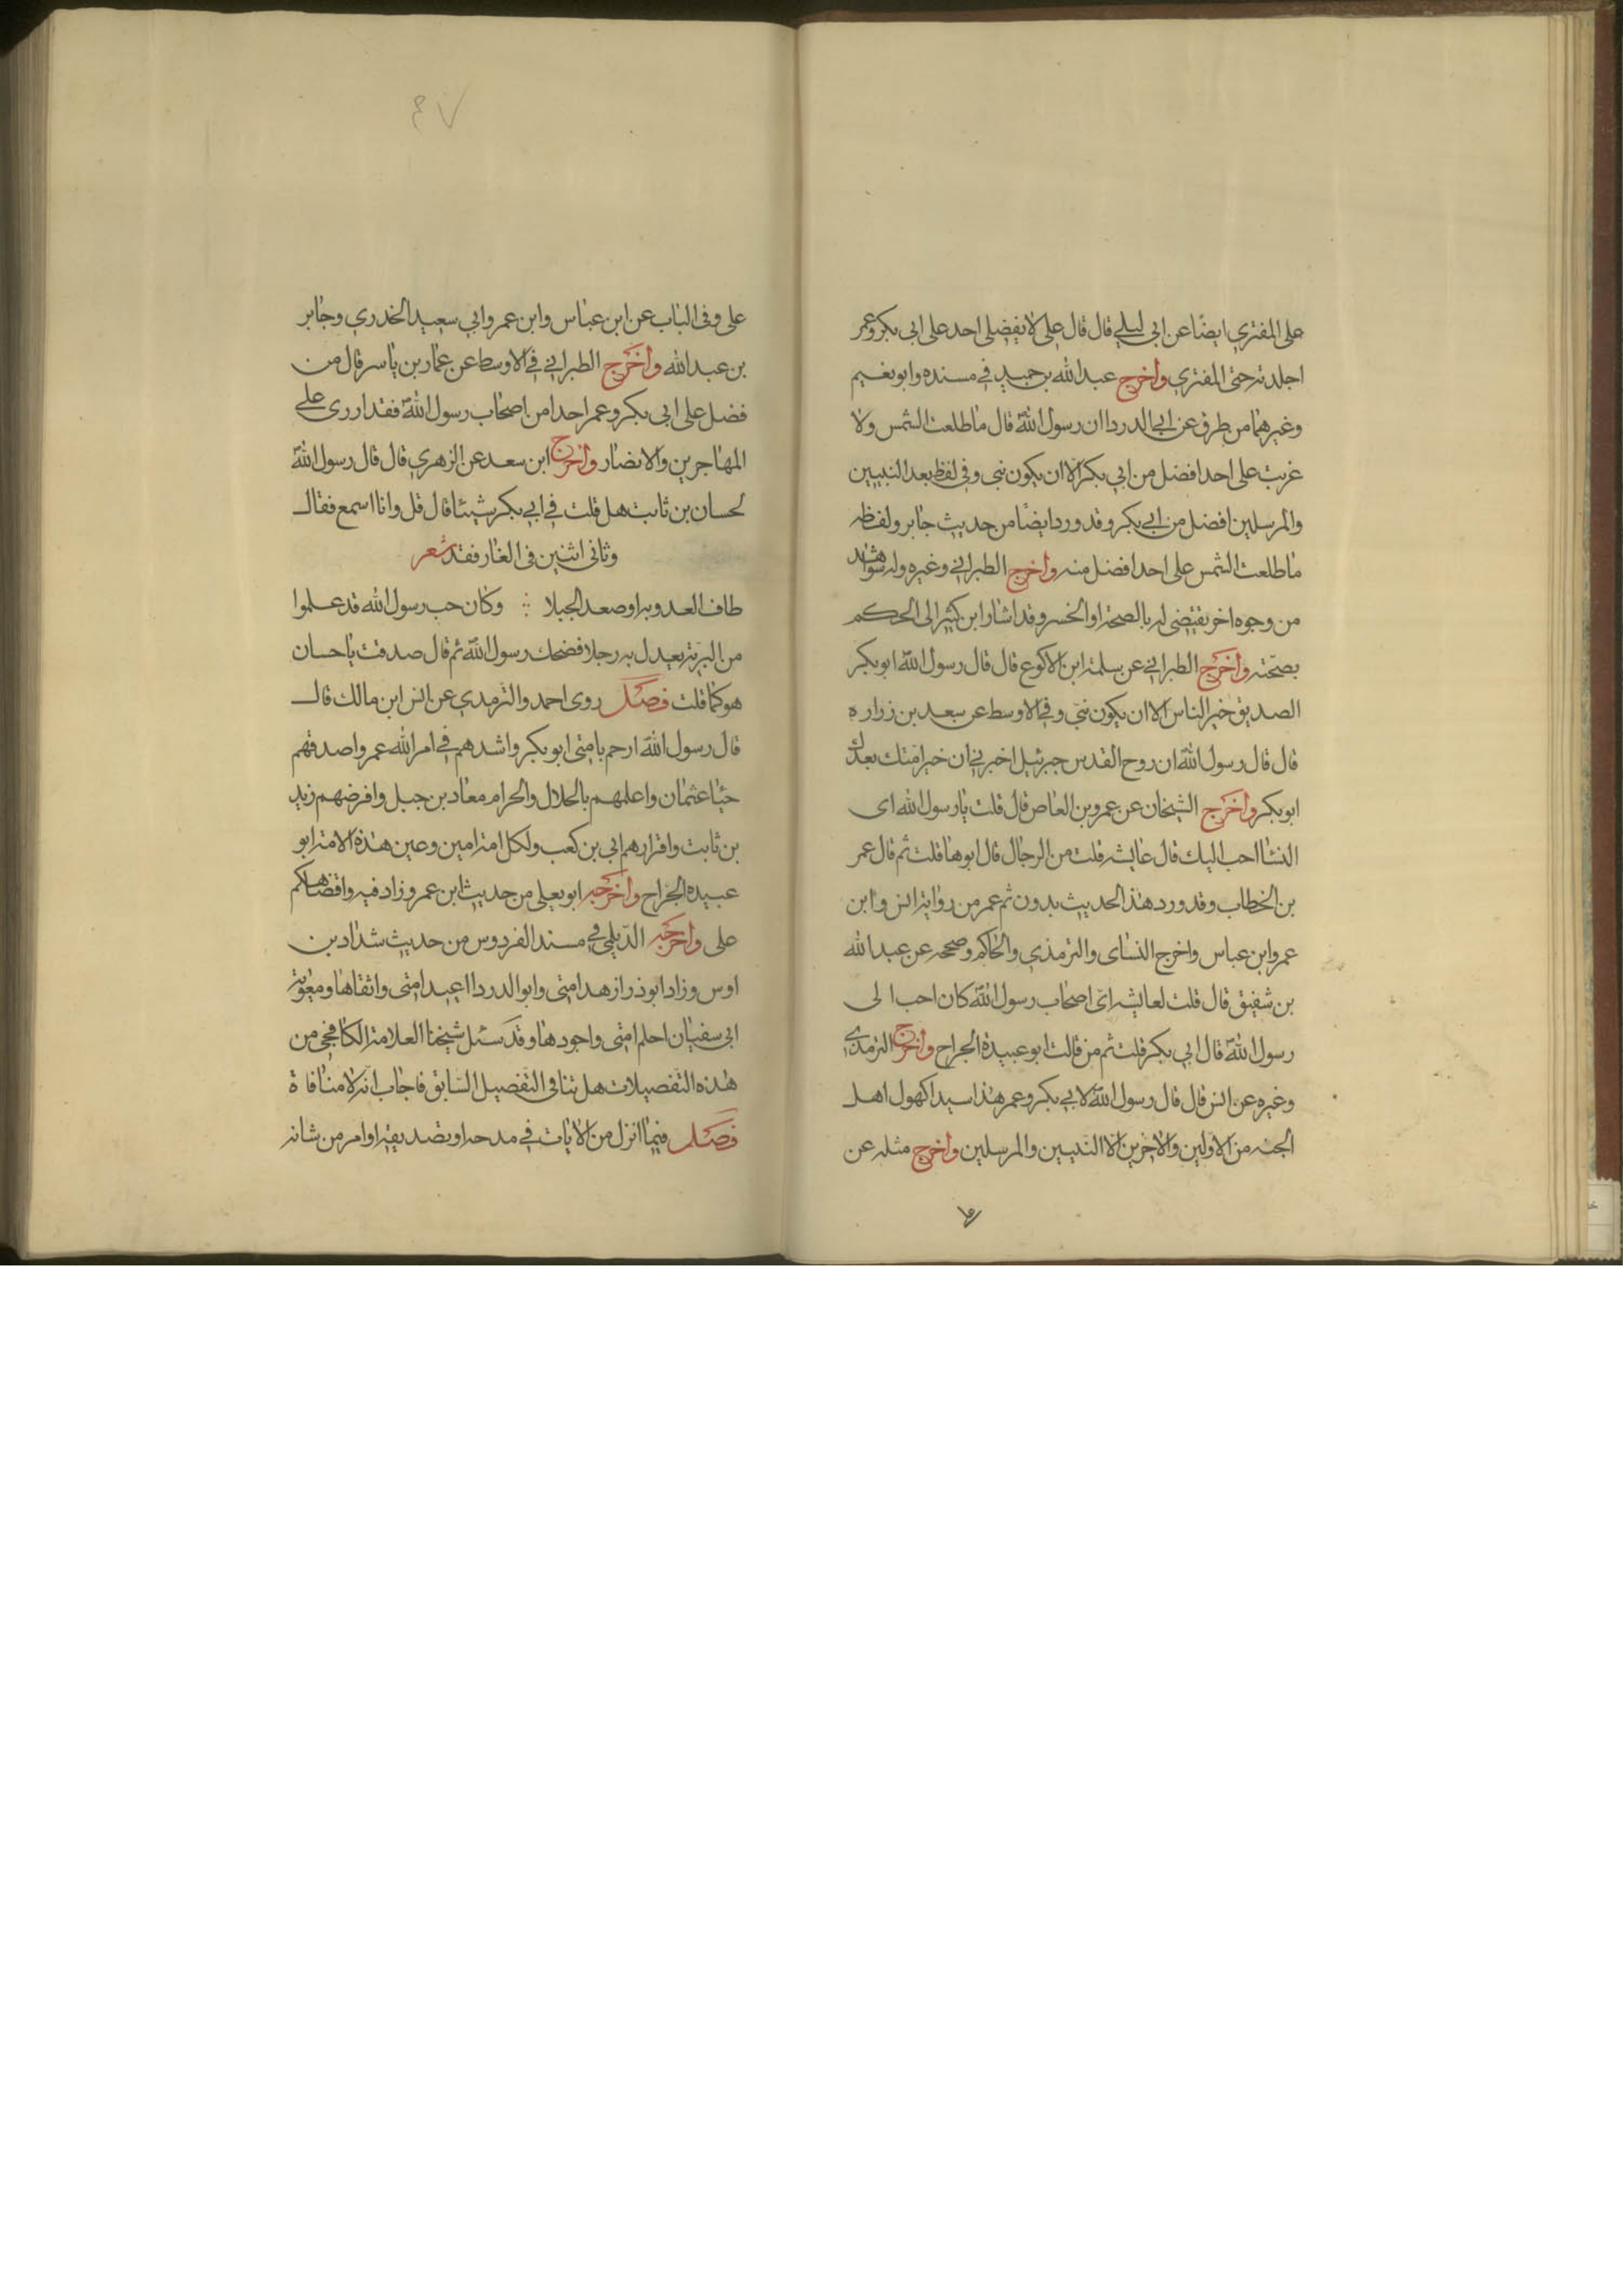 على المفتري ايضًا عن ابى ليلى قال قال على لا يفضلى احد على ابى بكر وعمر
اجلدته حتى المفتري واخرج عبد الله بن حميد في مسنده وابو نعيم
وغيرهما من طرق عن ابي الدردا ان رسول الله قال ما طلعت الشمس ولا
غربت على احد افضل من ابي بكر الا ان يكون نبى وفى لفظ بعد النبيين
والمرسلين افضل من ابي بكر وقد ورد ايضًا من حديث جابر ولفظه
ما طلعت الشمس على احد افضل منه واخرج الطبراني وغيره وله شواهد
من وجوه اخر تقتضى له بالصحة او الحسن وقد اشار ابن كثير الى الحكم
بصحّته واخرج الطبراني عن سلمة ابن الاكوع قال قال رسول الله ابو بكر
الصديق خير الناس الا ان يكون نبيّ وفي الاوسط عن سعد بن زراره
قال قال رسول الله ان روح القدس جبرئيل اخبرني ان خير امّتك بعدك
ابو بكر واخرج الشيخان عن عمرو بن العاص قال قلت يا رسول الله اى
النسا احب اليك قال عايشه قلت من الرجال قال ابوها قلت ثم قال عمر
بن الخطاب وقد ورد هذا الحديث بدون ثم عمر من رواية انس وابن
عمر وابن عباس واخرج النساى والترمذي والحاكم وصححه عن عبد الله
بن شفيق قال قلت لعايشه اىّ اصحاب رسول الله كان احب الى
رسول الله قال ابي بكر قلت ثم من قالت ابو عبيدة الجراح واخرج الترمذي
وغيره عن انس قال قال رسول الله لابي بكر وعمر هذا سيدا كهول اهل
الجنه من الاولين والاخرين الا النبيين والمرسلين واخرج مثله عن
٤٧
على وفى الباب عن ابن عباس وابن عمر وابي سعيد الخدري وجابر
بن عبد الله واخرج الطبراني في الاوسط عن عمار بن ياسر قال من
فضل على ابى بكر وعمر احدا من اصحاب رسول الله فقد ازرى على
المهاجرين والانصار واخرج ابن سعد عن الزهري قال قال رسول الله
لحسان بن ثابت هل قلت في ابي بكر شيئا قال قل وانا اسمع فقال
وثانى اثنين فى الغار فقد شعر
طاف العدو به او صعد الجبلا وكان حب رسول الله قد علموا
من البريّة يعدل به رجلا فضحك رسول الله ثم قال صدقت يا حسان
هو كما قلت فصل روى احمد والترمدي عن انس ابن مالك قال
قال رسول الله ارحم بامتى ابو بكر واشدهم في امر الله عمر واصدقهم
حيًا عثمان واعلمهم بالحلال والحرام معاد بن جبل وافرضهم زيد
بن ثابت واقرارهم ابي بن كعب ولكل امة امين وعين هذه الامة ابو
عبيده الجراح واخرجه ابو يعلى من حديث ابن عمر وزاد فيه واقضاكم
على واخرجه الدّيلمي في مسند الفردوس من حديث شداد بن
اوس وزاد ابو ذر ازهد امتى وابو الدردا اعبد امتى واتقاها ومعوية
ابى سفيان احلم امتى واجودها وقد سئل شيخنا العلامة الكافجى من
هذه التفصيلات هل تنافى التفصيل السابق فاجاب انه لا منافاة
فصل فيما انزل من الايات في مدحه او تصديقه او امر من شانه